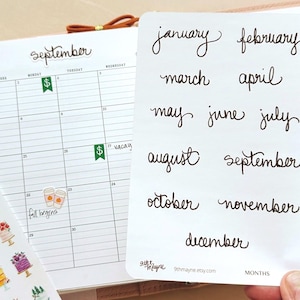 september
MONDAY TUESDAY WEDNESDAY
$
$
fall begins
january february
march april
may june july
august september
october november
december
MONTHS